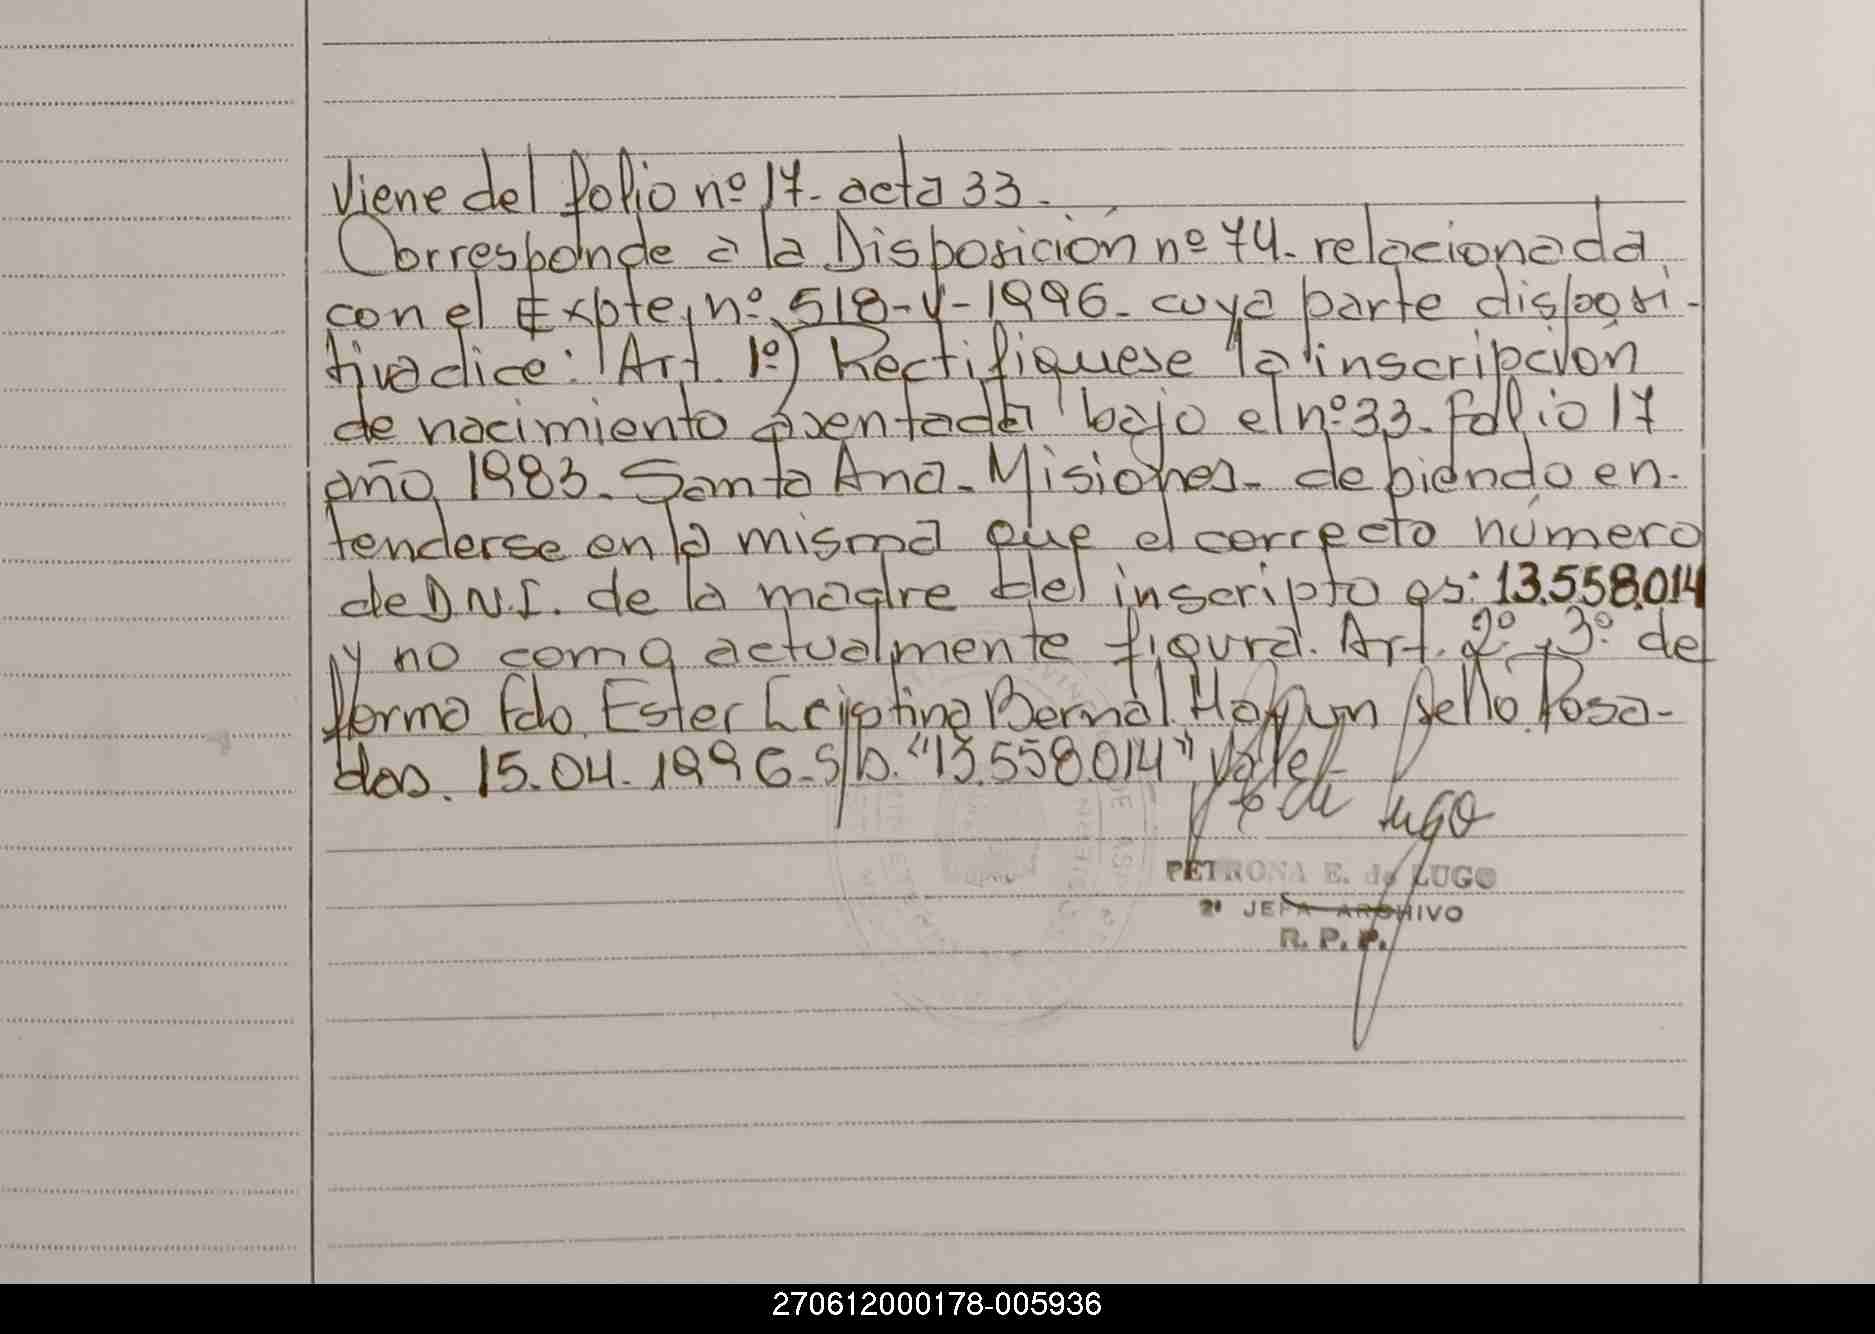 Viene del folio nº 17- acta 33-
Corresponde a la Disposición nº 74- relacionada
con el Expte, nº 518-V-1996- cuya parte disposi-
tiva dice: "Art. 1º) Rectifiquese la inscripción
de nacimiento asentada bajo el nº 33- Folio 17
año 1983- Santa Ana- Misiones- debiendo en-
tenderse en la misma que el correcto número
de D.N.I. de la madre del inscripto es: 13.558.014
y no como actualmente figura. Art. 2º y 3º de
forma Fdo. Ester Cristina Bernal. Hay un sello Posa-
das. 15.04.1996- S/b. "13.558.014" Vale-
E de Lugo
PETRONA E. de LUGO
2º JEFA ARCHIVO
R. P. P.
270612000178-005936